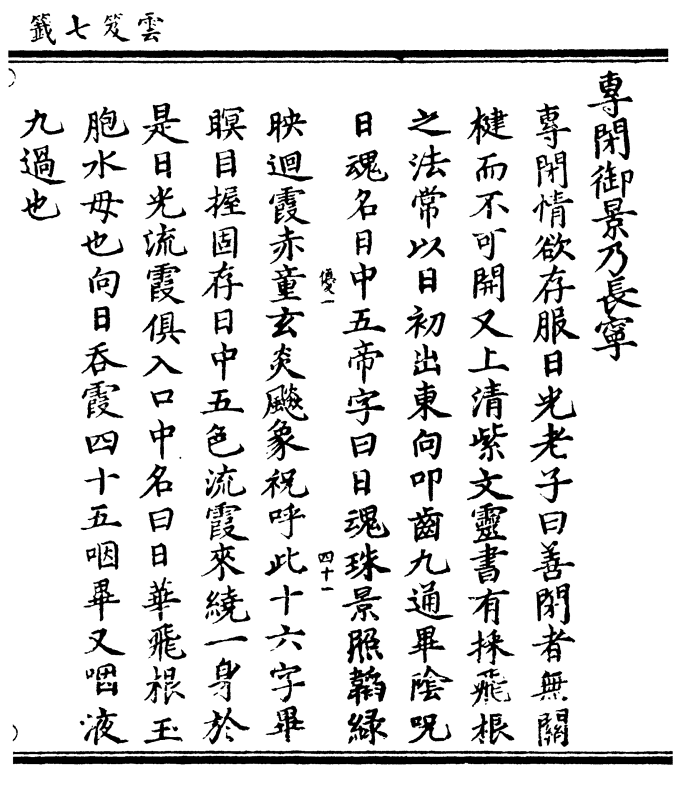 雲笈七籤
專閉御景乃長寧
專閉情欲存服日光老子曰善閉者無關
楗而不可開又上清紫文靈書有採飛根
之法常以日初出東向叩齒九通畢陰呪
日魂名日中五帝字曰日魂珠景照韜綠
優一
四十一
映迴霞赤童玄炎飈象祝呼此十六字畢
瞑目握固存日中五色流霞來繞一身於
是日光流霞俱入口中名曰日華飛根玉
胞水母也向日吞霞四十五咽畢又咽液
九過也